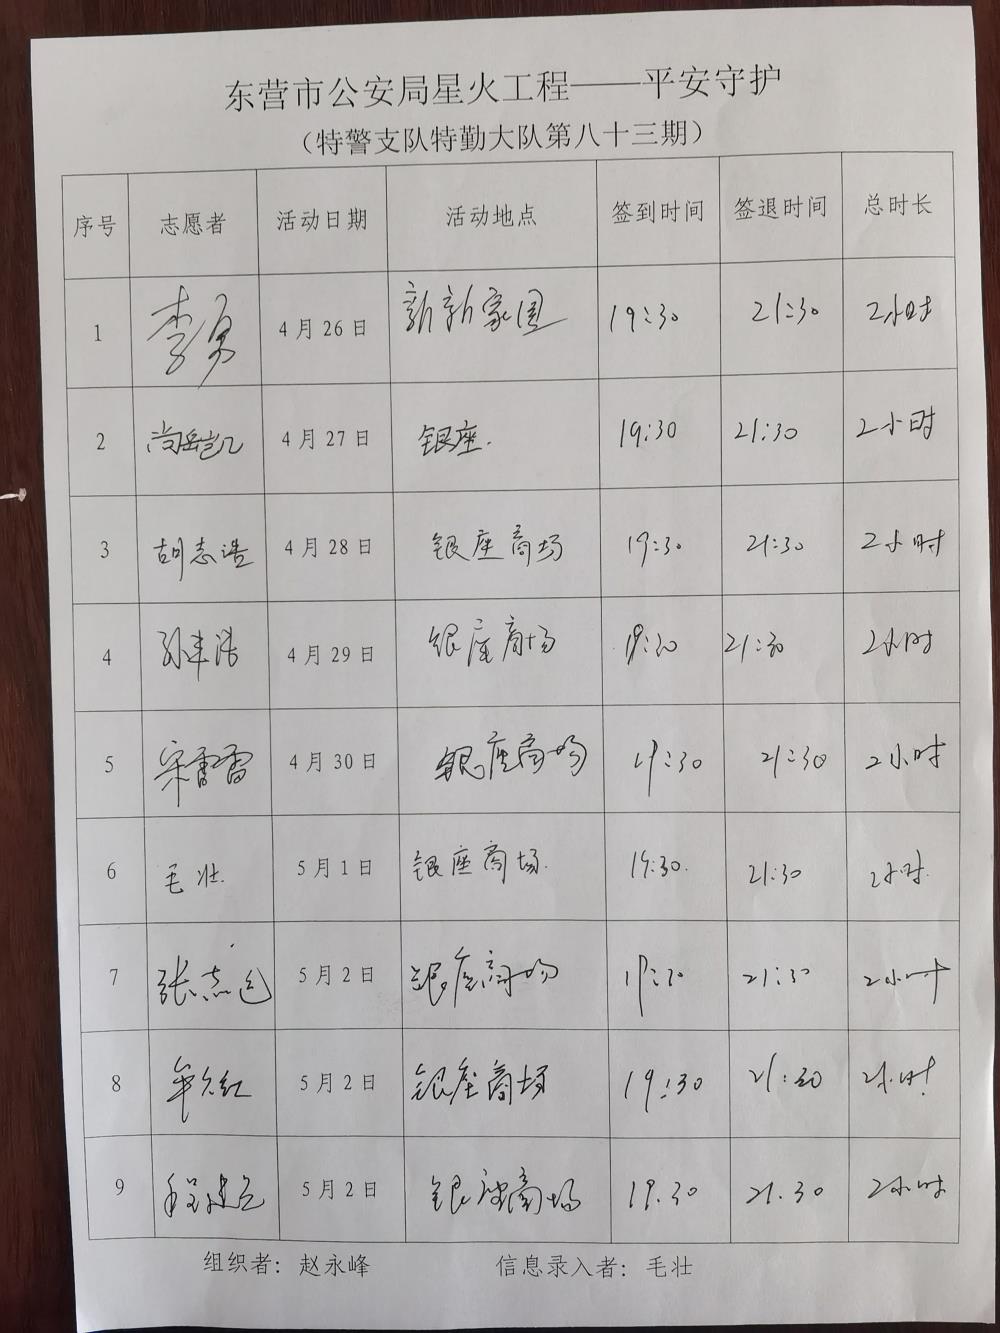 东营市公安局星火工程——平安守护
（特警支队特勤大队第八十三期）
序号 志愿者 活动日期 活动地点 签到时间 签退时间 总时长
1 李勇 4月26日 新新家园 19:30 21:30 2小时
2 尚岳凯 4月27日 银座. 19:30 21:30 2小时
3 胡志浩 4月28日 银座商场 19:30 21:30 2小时
4 4月29日 银座商场 19:30 21:30 2小时
5 宋雷雷 4月30日 银座商场 19:30 21:30 2小时
6 毛壮. 5月1日 银座商场. 19:30. 21:30 2小时.
7 5月2日 银座商场 19:30 21:30 2小时
8 5月2日 银座商场 19:30 21:30 2小时
9 5月2日 银座商场 19.30 21.30 2小时
组织者：赵永峰 信息录入者：毛壮